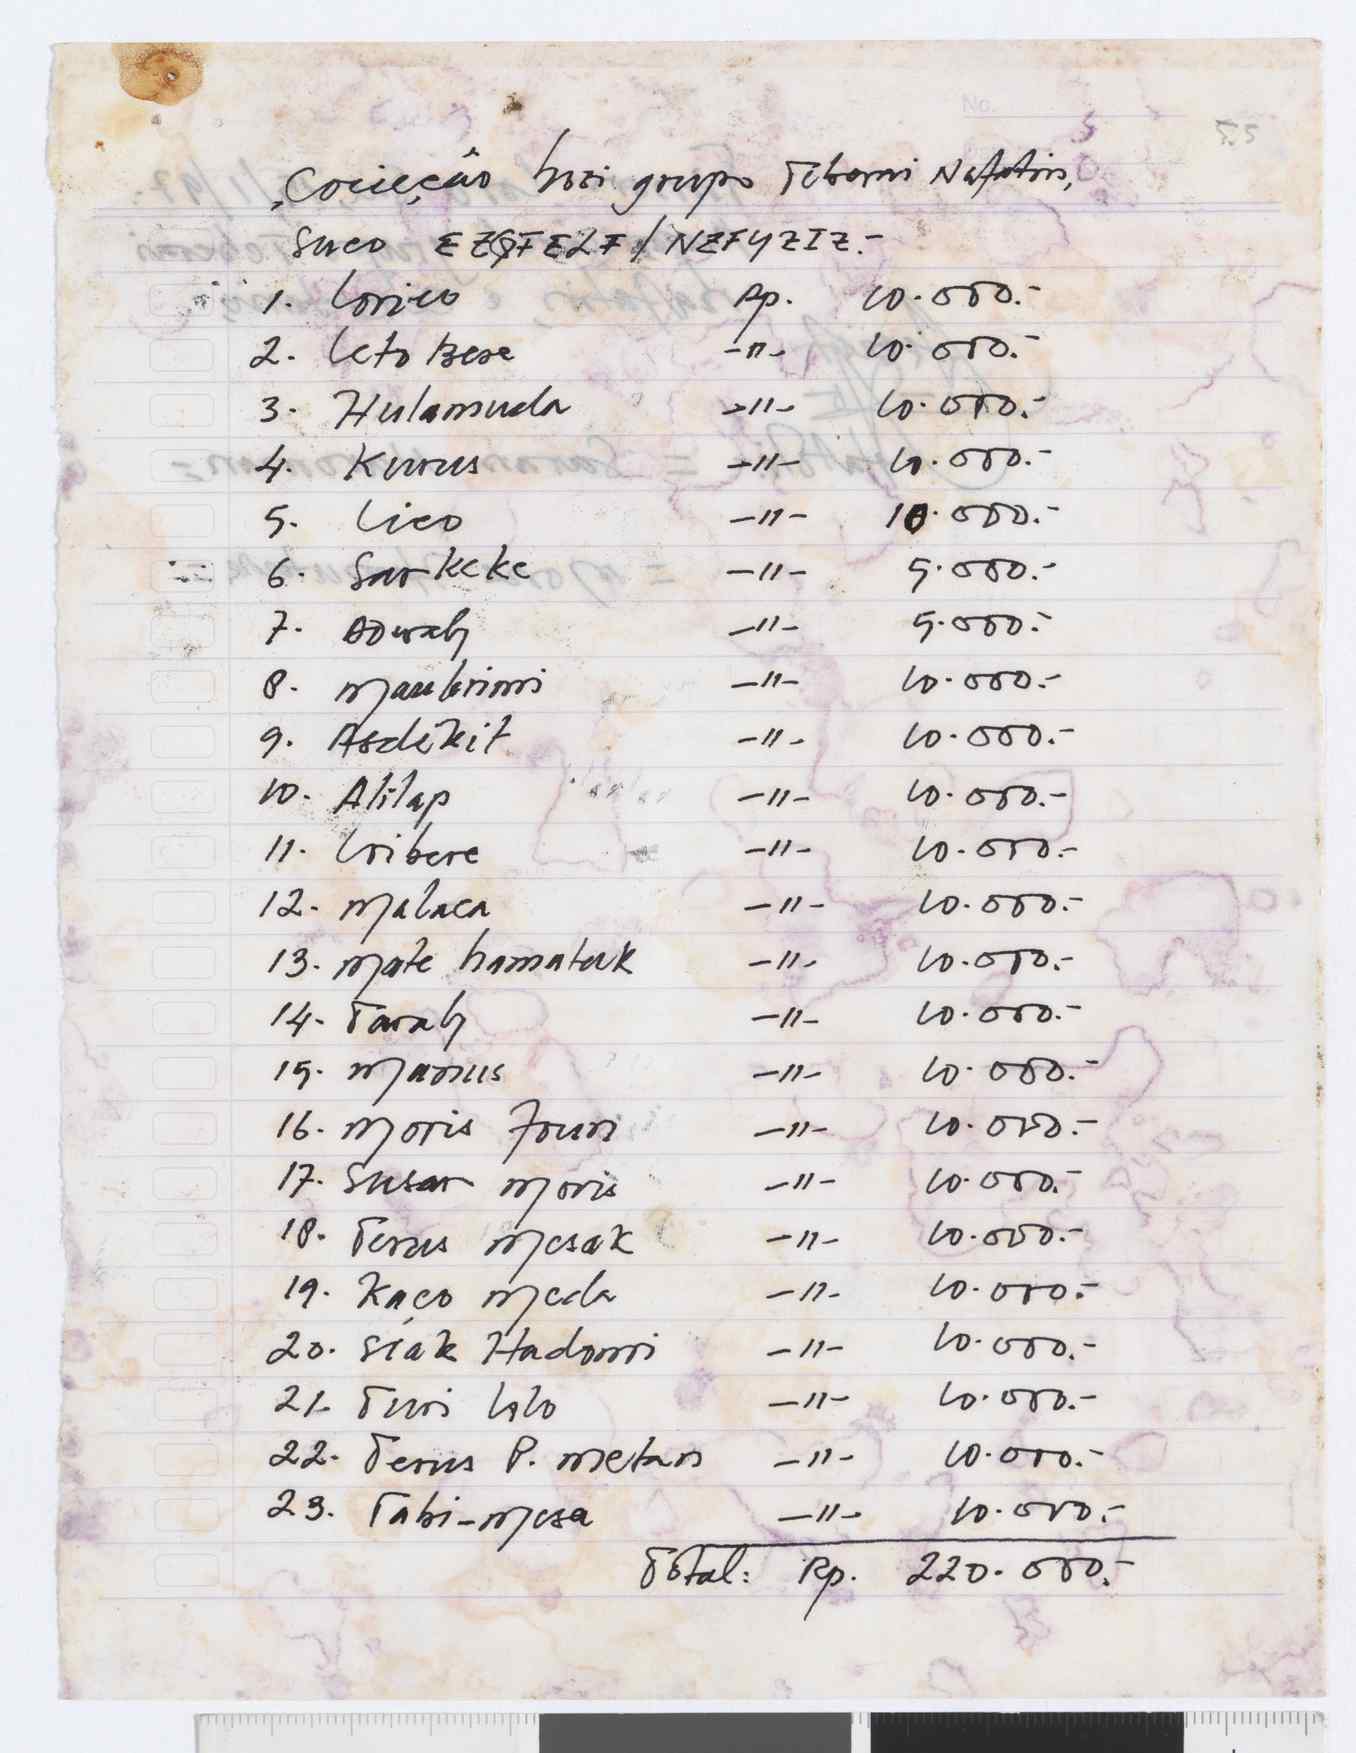 No.
53
Colecção husi grupo Teberni Nafatin,
Suco EZQFELF / NZFYZIZ.-
1. Lorico Rp. 10.000.-
2. Leto Bere -"- 10.000.-
3. Hulamuda -"- 10.000.-
4. Kurus -"- 10.000.-
5. Lico -"- 10.000.-
6. Sar keke -"- 5.000.-
7. -"- 5.000.-
8. -"- 10.000.-
9. Asdekit -"- 10.000.-
10. Alilap -"- 10.000.-
11. Loibere -"- 10.000.-
12. Malaca -"- 10.000.-
13. Mate hamatuk -"- 10.000.-
14. Tarah -"- 10.000.-
15. -"- 10.000.-
16. Moris Foun -"- 10.000.-
17. Susar Moris -"- 10.000.-
18. Terus Mesak -"- 10.000.-
19. Kaço Meda -"- 10.000.-
20. Siak Hadomi -"- 10.000.-
21. Turi lolo -"- 10.000.-
22. Terus P. Metan -"- 10.000.-
23. Tahi-Mesa -"- 10.000.-
Total: Rp. 220.000.-